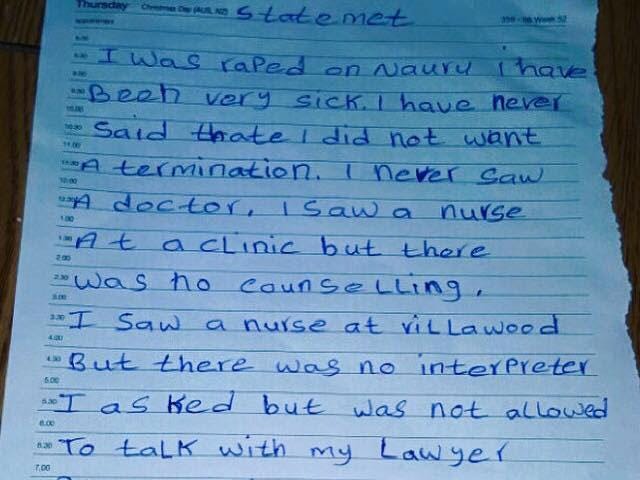 Thursday Christmas Day (AUS, NZ) Statemet 359 - 06 Week 52
appointments
8.00
8.30 I was raped on Nauru i have
9.00
9.30 Been very sick. I have never
10.00
10.30 Said thate I did not want
11.00
11.30 A termination. I never saw
12.00
12.30 A doctor, I saw a nurse
1.00
1.30 At a clinic but there
2.00
2.30 was no counselling.
3.00
3.30 I saw a nurse at villawood
4.00
4.30 But there was no interpreter
5.00
5.30 I asked but was not allowed
6.00
6.30 To talk with my Lawyer
7.00